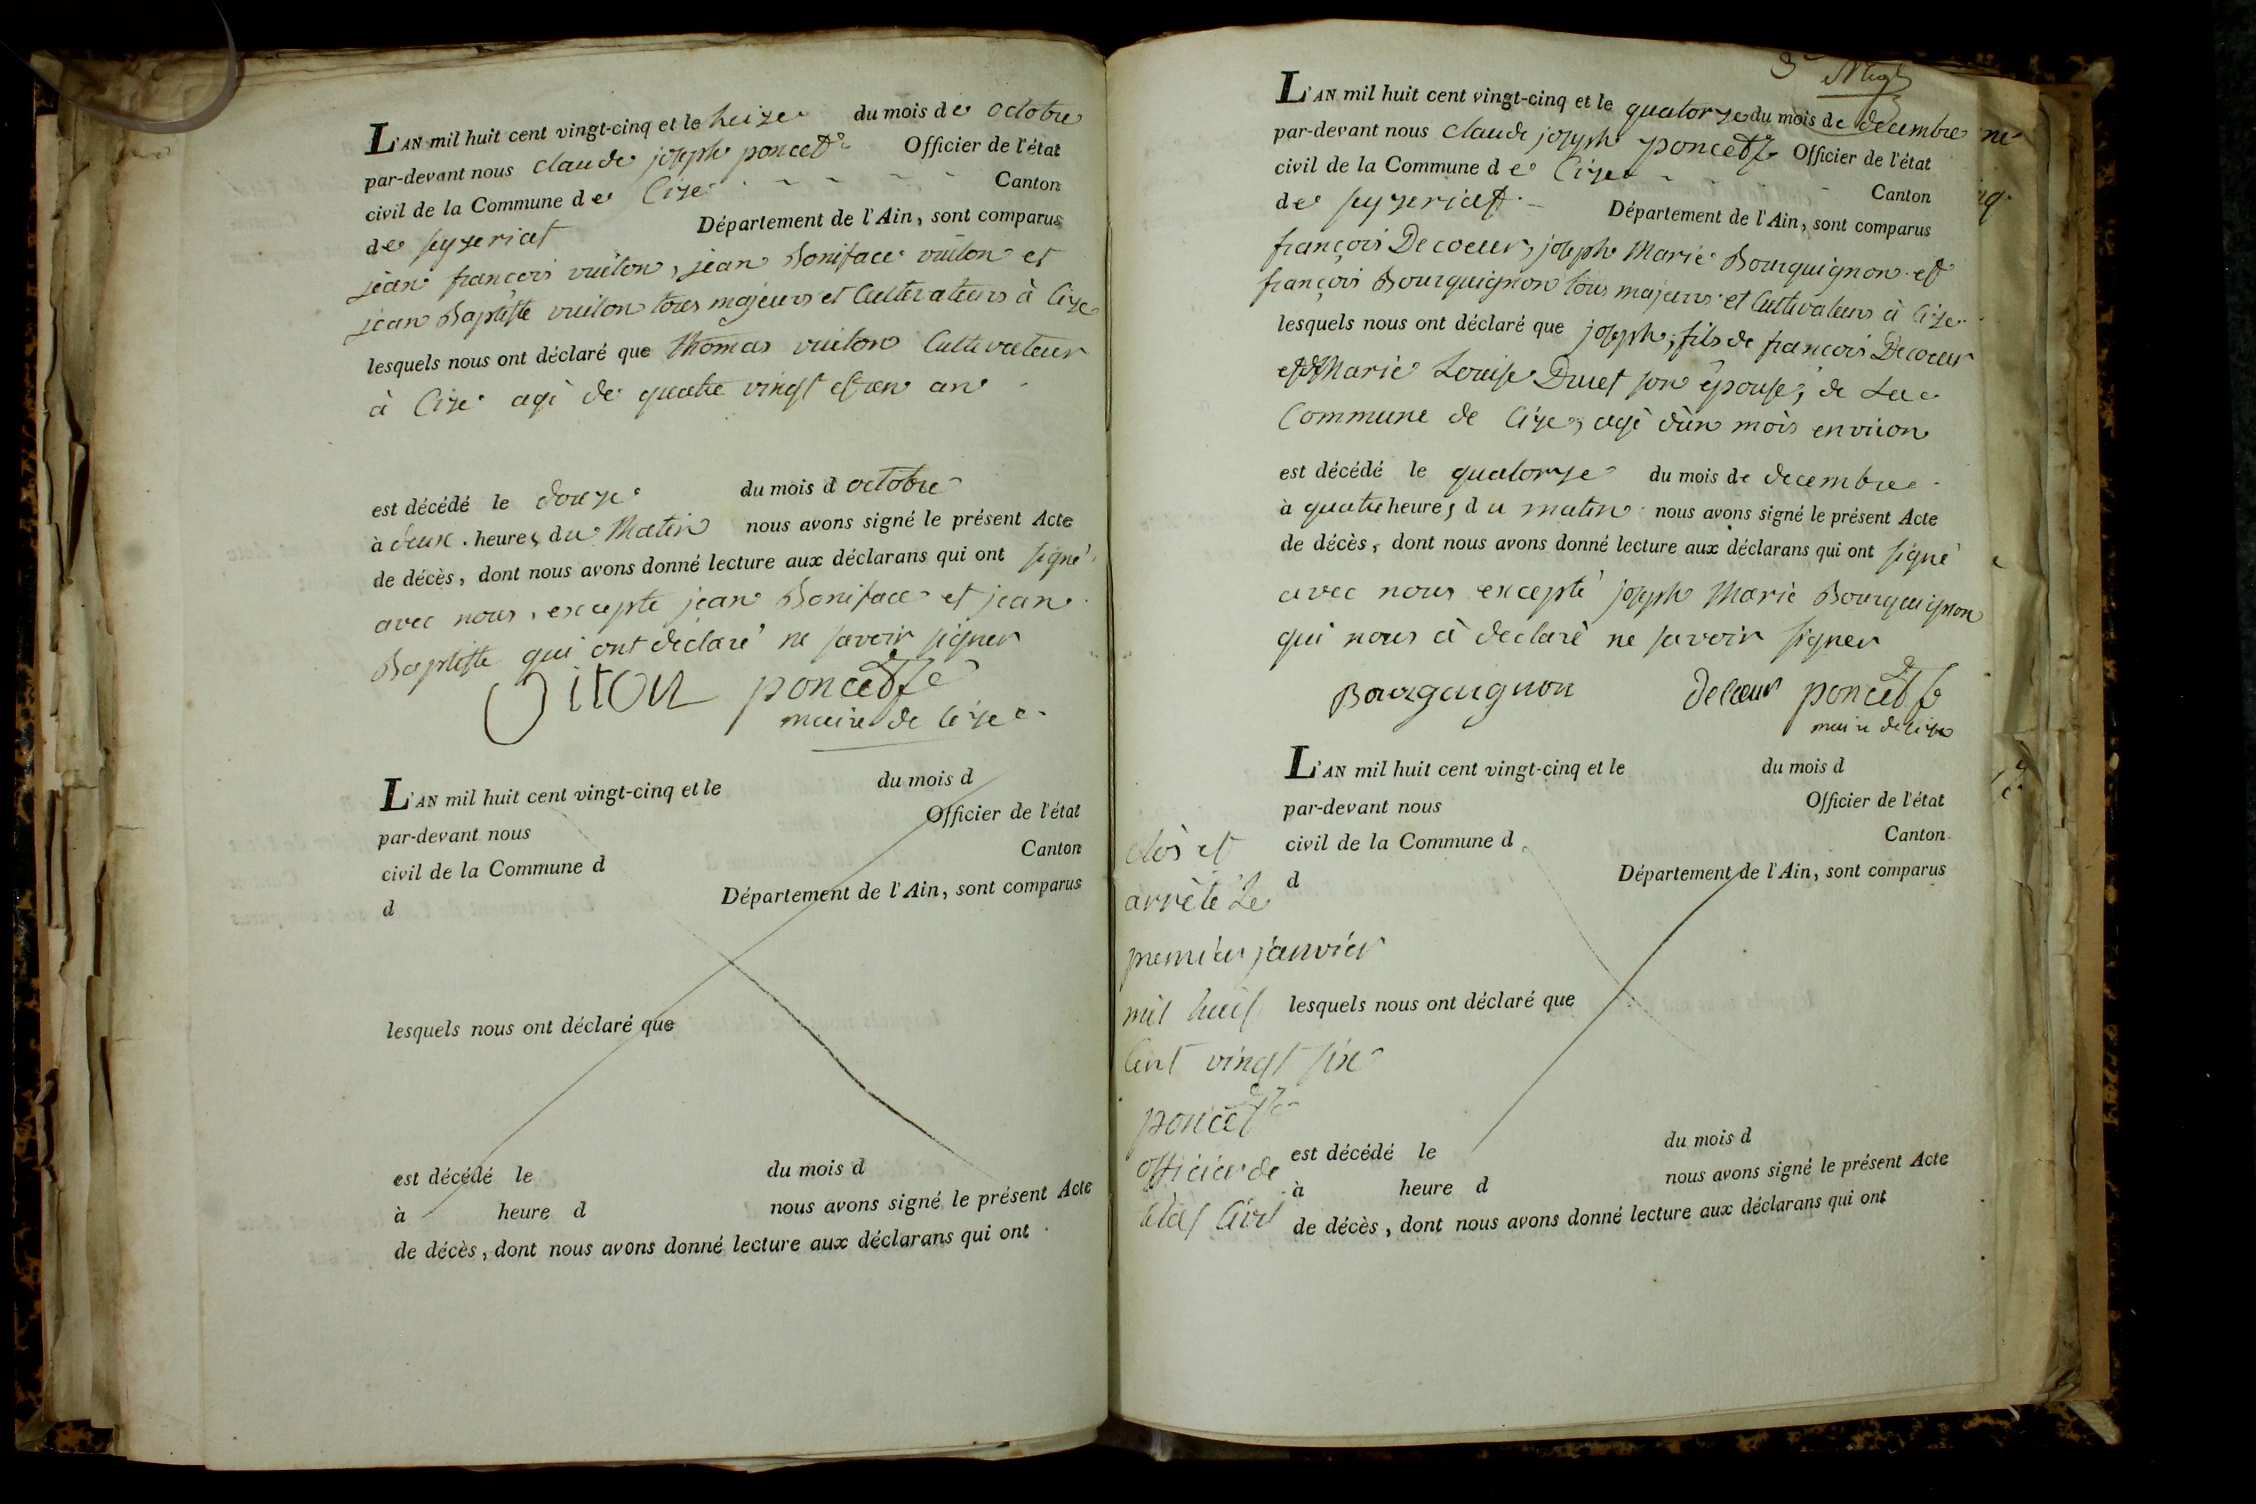 L'AN mil huit cent vingt-cinq et le treize du mois de octobre
par-devant nous Claude joseph poncet Officier de l'état
civil de la Commune de Cize Canton
de seyzeriat Département de l'Ain, sont comparus
jean francois vuiton, jean Boniface vuiton et
jean Baptiste vuiton tous majeurs et Cultivateurs à Cize
lesquels nous ont déclaré que thomas vuiton Cultivateur
à Cize agé de quatre vingt et un an
est décédé le douze du mois d octobre
à deux heures du Matin nous avons signé le présent Acte
de décès, dont nous avons donné lecture aux déclarans qui ont signé
avec nous, excepte jean Boniface et jean
Baptiste qui ont déclaré ne savoir signer
Viton poncet
maire de Cize
L'AN mil huit cent vingt-cinq et le du mois d
par-devant nous Officier de l'état
civil de la Commune d Canton
d Département de l'Ain, sont comparus
lesquels nous ont déclaré que
est décédé le du mois d
à heure d nous avons signé le présent Acte
de décès, dont nous avons donné lecture aux déclarans qui ont
L'AN mil huit cent vingt-cinq et le quatorze du mois de decembre
par-devant nous Claude joseph poncet Officier de l'état
civil de la Commune de Cize Canton
de seyzeriat Département de l'Ain, sont comparus
françois Decoeur, joseph Marie Bourguignon et
françois Bourguignon tous majeurs et Cultivateurs à Cize
lesquels nous ont déclaré que joseph, fils de francois Decoeur
et Marie Louise Duret son épouse, de La
Commune de Cize, agé d'un mois environ
est décédé le quatorze du mois de decembre
à quatre heures du matin nous avons signé le présent Acte
de décès, dont nous avons donné lecture aux déclarans qui ont signé
avec nous excepté joseph Marie Bourguignon
qui nous à declaré ne savoir signer
Bourguignon Decoeur poncet
maire de Cize
L'AN mil huit cent vingt-cinq et le du mois d
par-devant nous Officier de l'état
civil de la Commune d Canton
d Département de l'Ain, sont comparus
lesquels nous ont déclaré que
est décédé le du mois d
à heure d nous avons signé le présent Acte
de décès, dont nous avons donné lecture aux déclarans qui ont
clos et
arrêté Le
premier janvier
mil huit
Cent vingt six
poncet
officier de
letat Civil